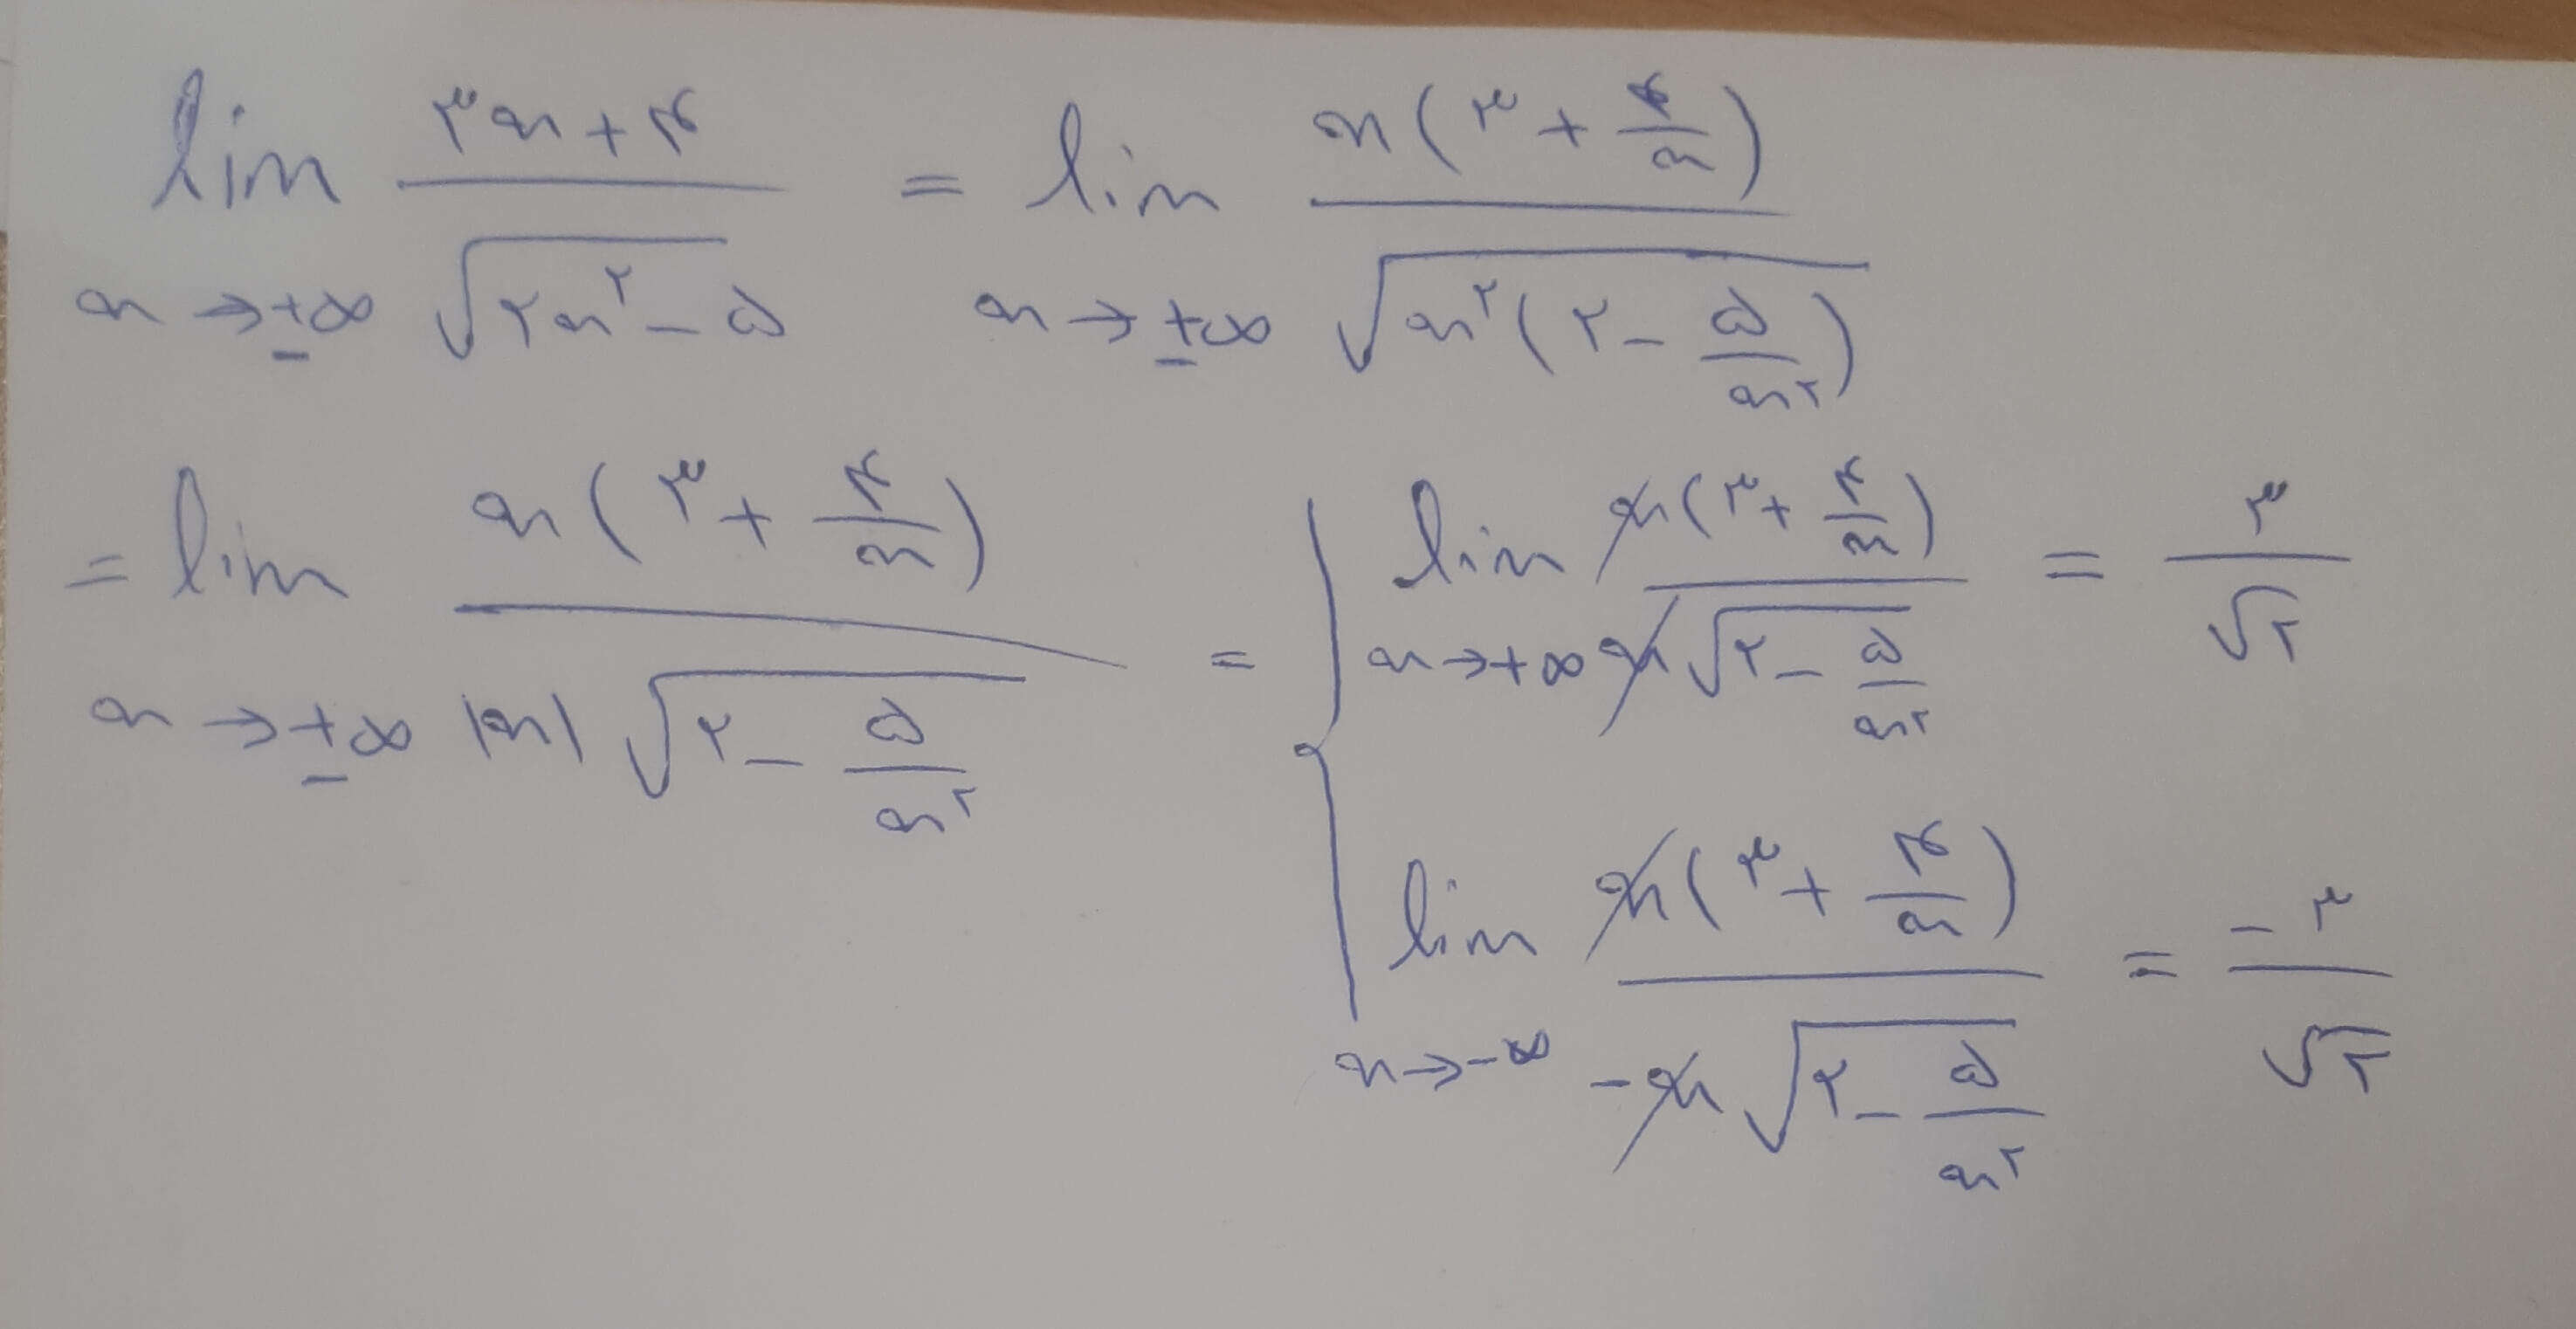 lim_{x→±∞} (۳x+۴)/√(۲x^۲-۵) = lim_{x→±∞} x(۳+۴/x)/√(x^۲(۲-۵/x^۲))
= lim_{x→±∞} x(۳+۴/x)/(|x|√(۲-۵/x^۲)) = {
lim_{x→+∞} x(۳+۴/x)/(x√(۲-۵/x^۲)) = ۳/√۲
lim_{x→-∞} x(۳+۴/x)/(-x√(۲-۵/x^۲)) = -۳/√۲